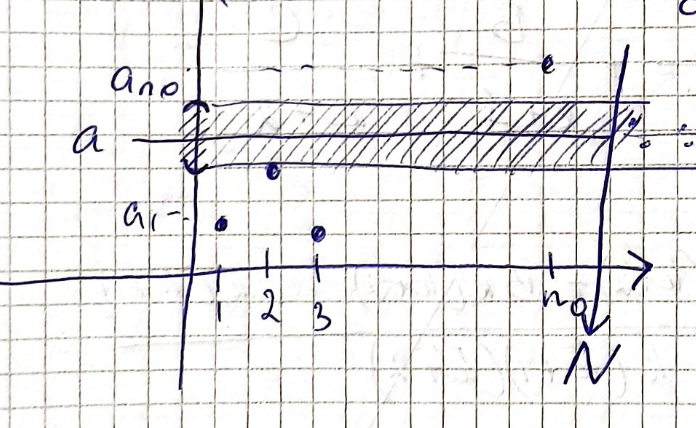 aₙ₀
a
a₁
1 2 3 n₀
N